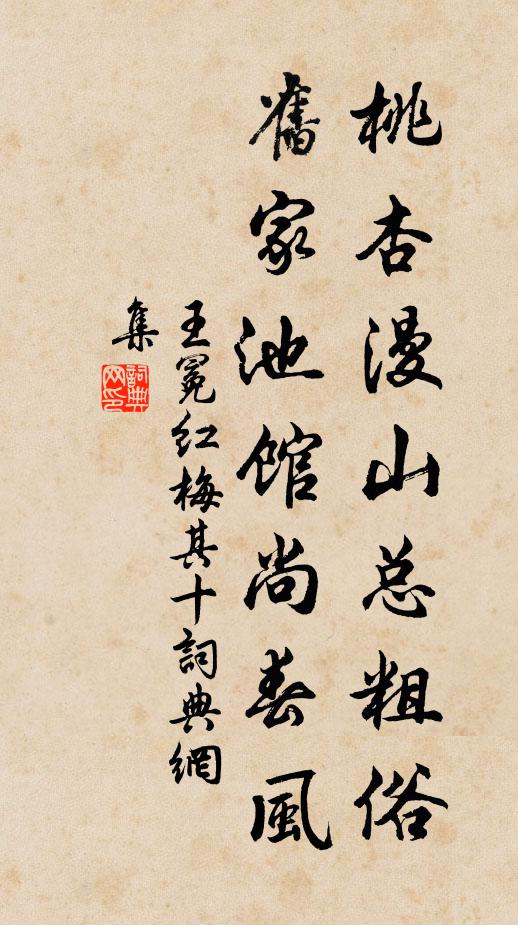 桃杏漫山总粗俗
舊家池館尚春風
王冕红梅其十詞典網
集
詞典
网印